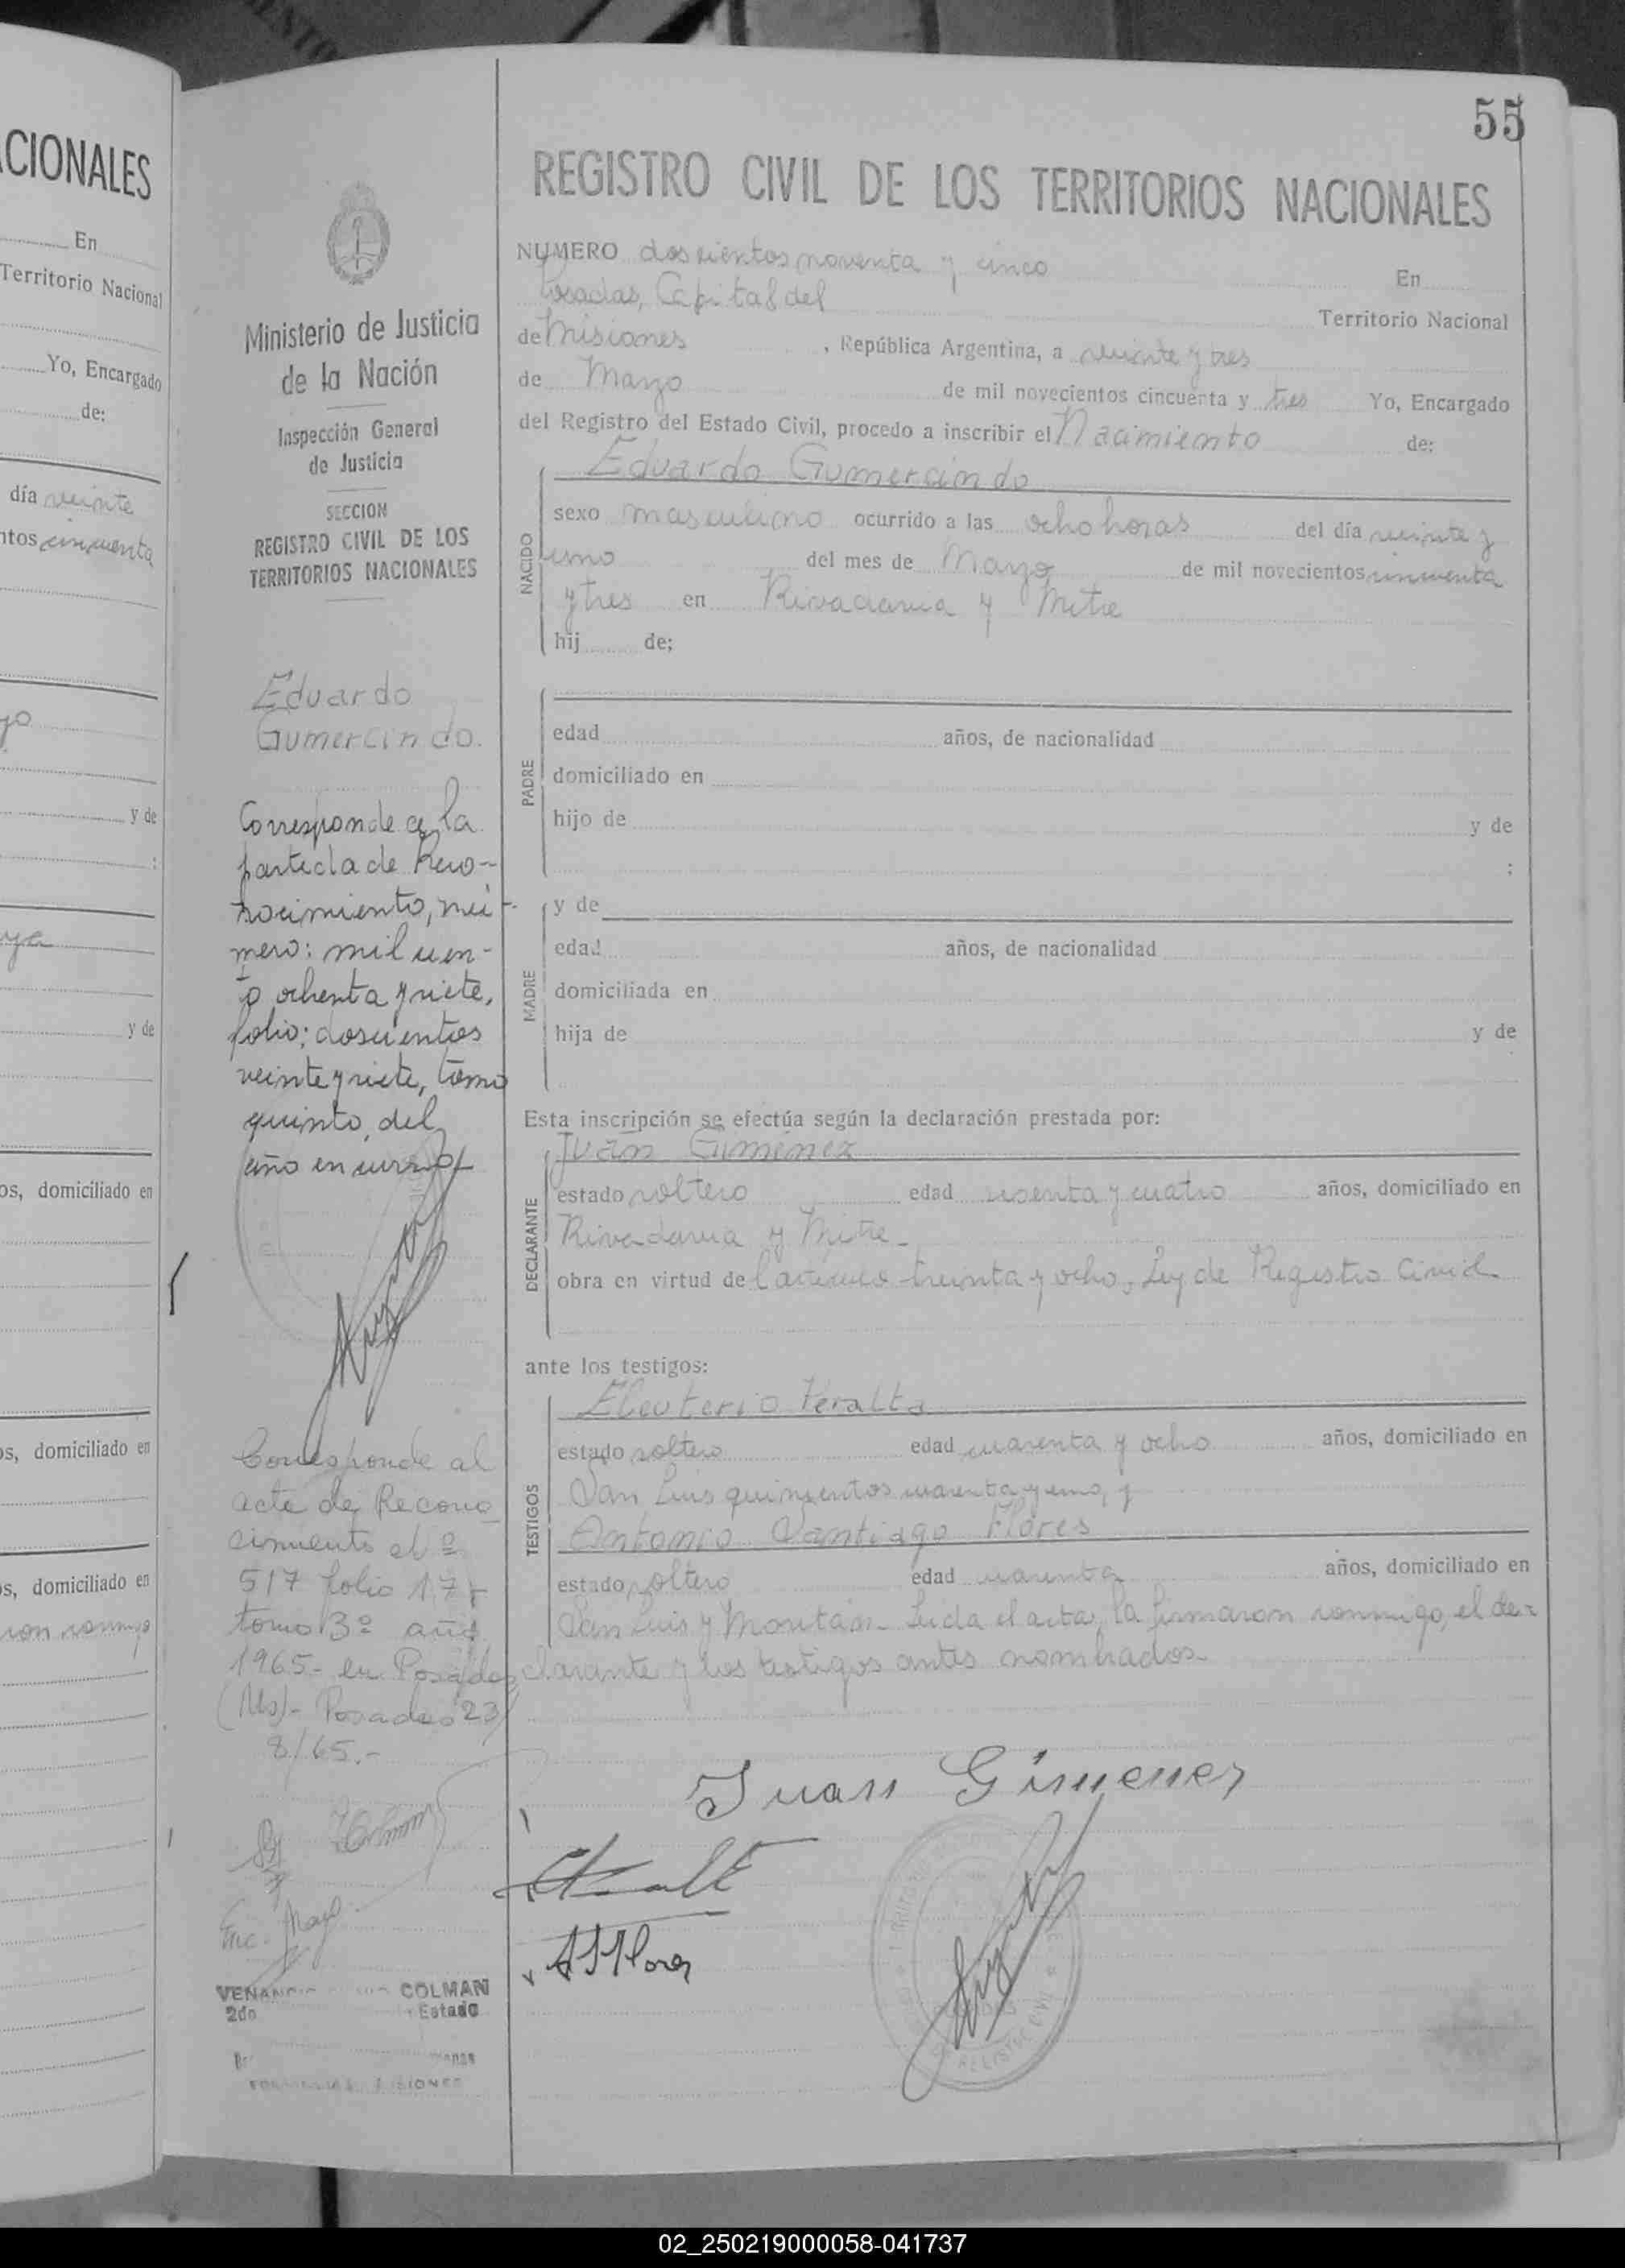 CIONALES
En
Territorio Nacional
Yo, Encargado
de:
día veinte
ntos cincuenta
yo
y de
:
y de
os, domiciliado en
os, domiciliado en
os, domiciliado en
con conmigo
Ministerio de Justicia
de la Nación
Inspección General
de Justicia
SECCION
REGISTRO CIVIL DE LOS
TERRITORIOS NACIONALES
Eduardo
Gumercindo.
Corresponde a la
partida de Reco-
nocimiento, nú-
mero: mil cien-
to ochenta y siete,
folio: doscientos
veinte y siete, tomo
quinto, del
año en curso
Corresponde al
acta de Recono
cimiento el º
517 folio 17
tomo 3º año
1965- en Posadas
(Ms)- Posadas 23/
8/65.-
Enc. Mayo
COLMAN
2do Estado
55
REGISTRO CIVIL DE LOS TERRITORIOS NACIONALES
NUMERO doscientos noventa y cinco En
Posadas, Capital del Territorio Nacional
de Misiones, República Argentina, a veinte y tres
de Marzo de mil novecientos cincuenta y tres Yo, Encargado
del Registro del Estado Civil, procedo a inscribir el Nacimiento de:
Eduardo Gumercindo
NACIDO
sexo masculino ocurrido a las ocho horas del día veinte y
uno del mes de Marzo de mil novecientos cincuenta
y tres en Rivadavia y Mitre
hij de;
PADRE
edad años, de nacionalidad
domiciliado en
hijo de y de
;
MADRE
y de
edad años, de nacionalidad
domiciliada en
hija de y de
Esta inscripción se efectúa según la declaración prestada por:
Juan Giménez
DECLARANTE
estado soltero edad sesenta y cuatro años, domiciliado en
Rivadavia y Mitre-
obra en virtud del artículo treinta y ocho, Ley de Registro Civil
ante los testigos:
TESTIGOS
Eleuterio Peralta
estado soltero edad cuarenta y ocho años, domiciliado en
San Luis quinientos cuarenta y uno, y
Antonio Santiago Flores
estado soltero edad cuarenta años, domiciliado en
San Luis y Moritán- Leida el acta, la firmaron conmigo, el de-
clarante y los testigos antes nombrados-
Juan Gimenez
ASFlores
02_250219000058-041737